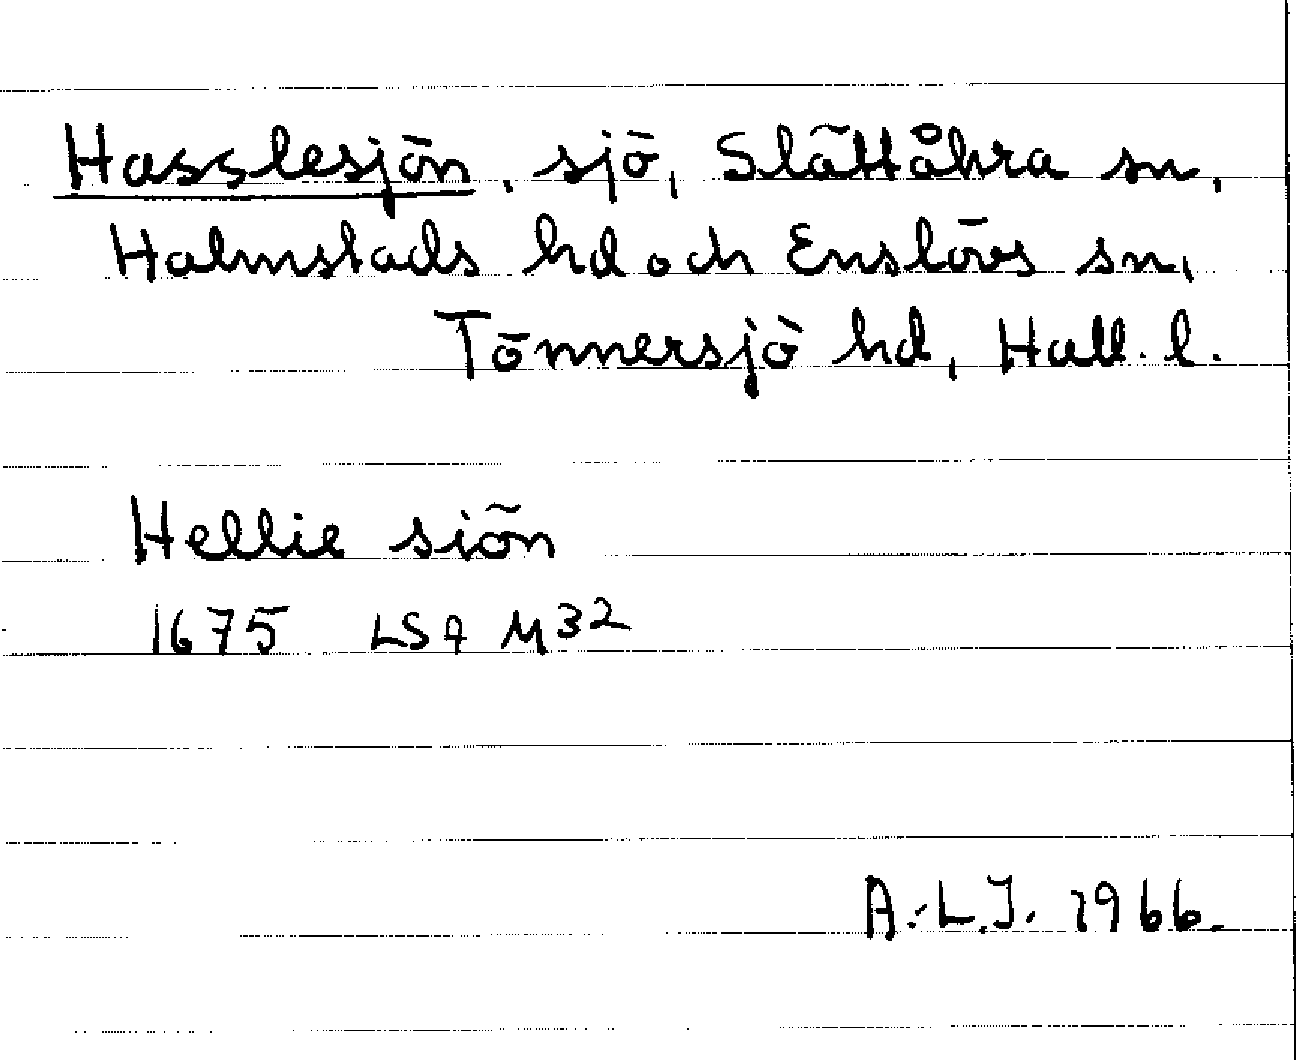 Hasslesjön, sjö, Slättåkra sn,
Halmstads hd och Enslövs sn,
Tönnersjö hd, Hall. l.
Hellie siön
1675 LSA M32
A.-L.J. 1966.